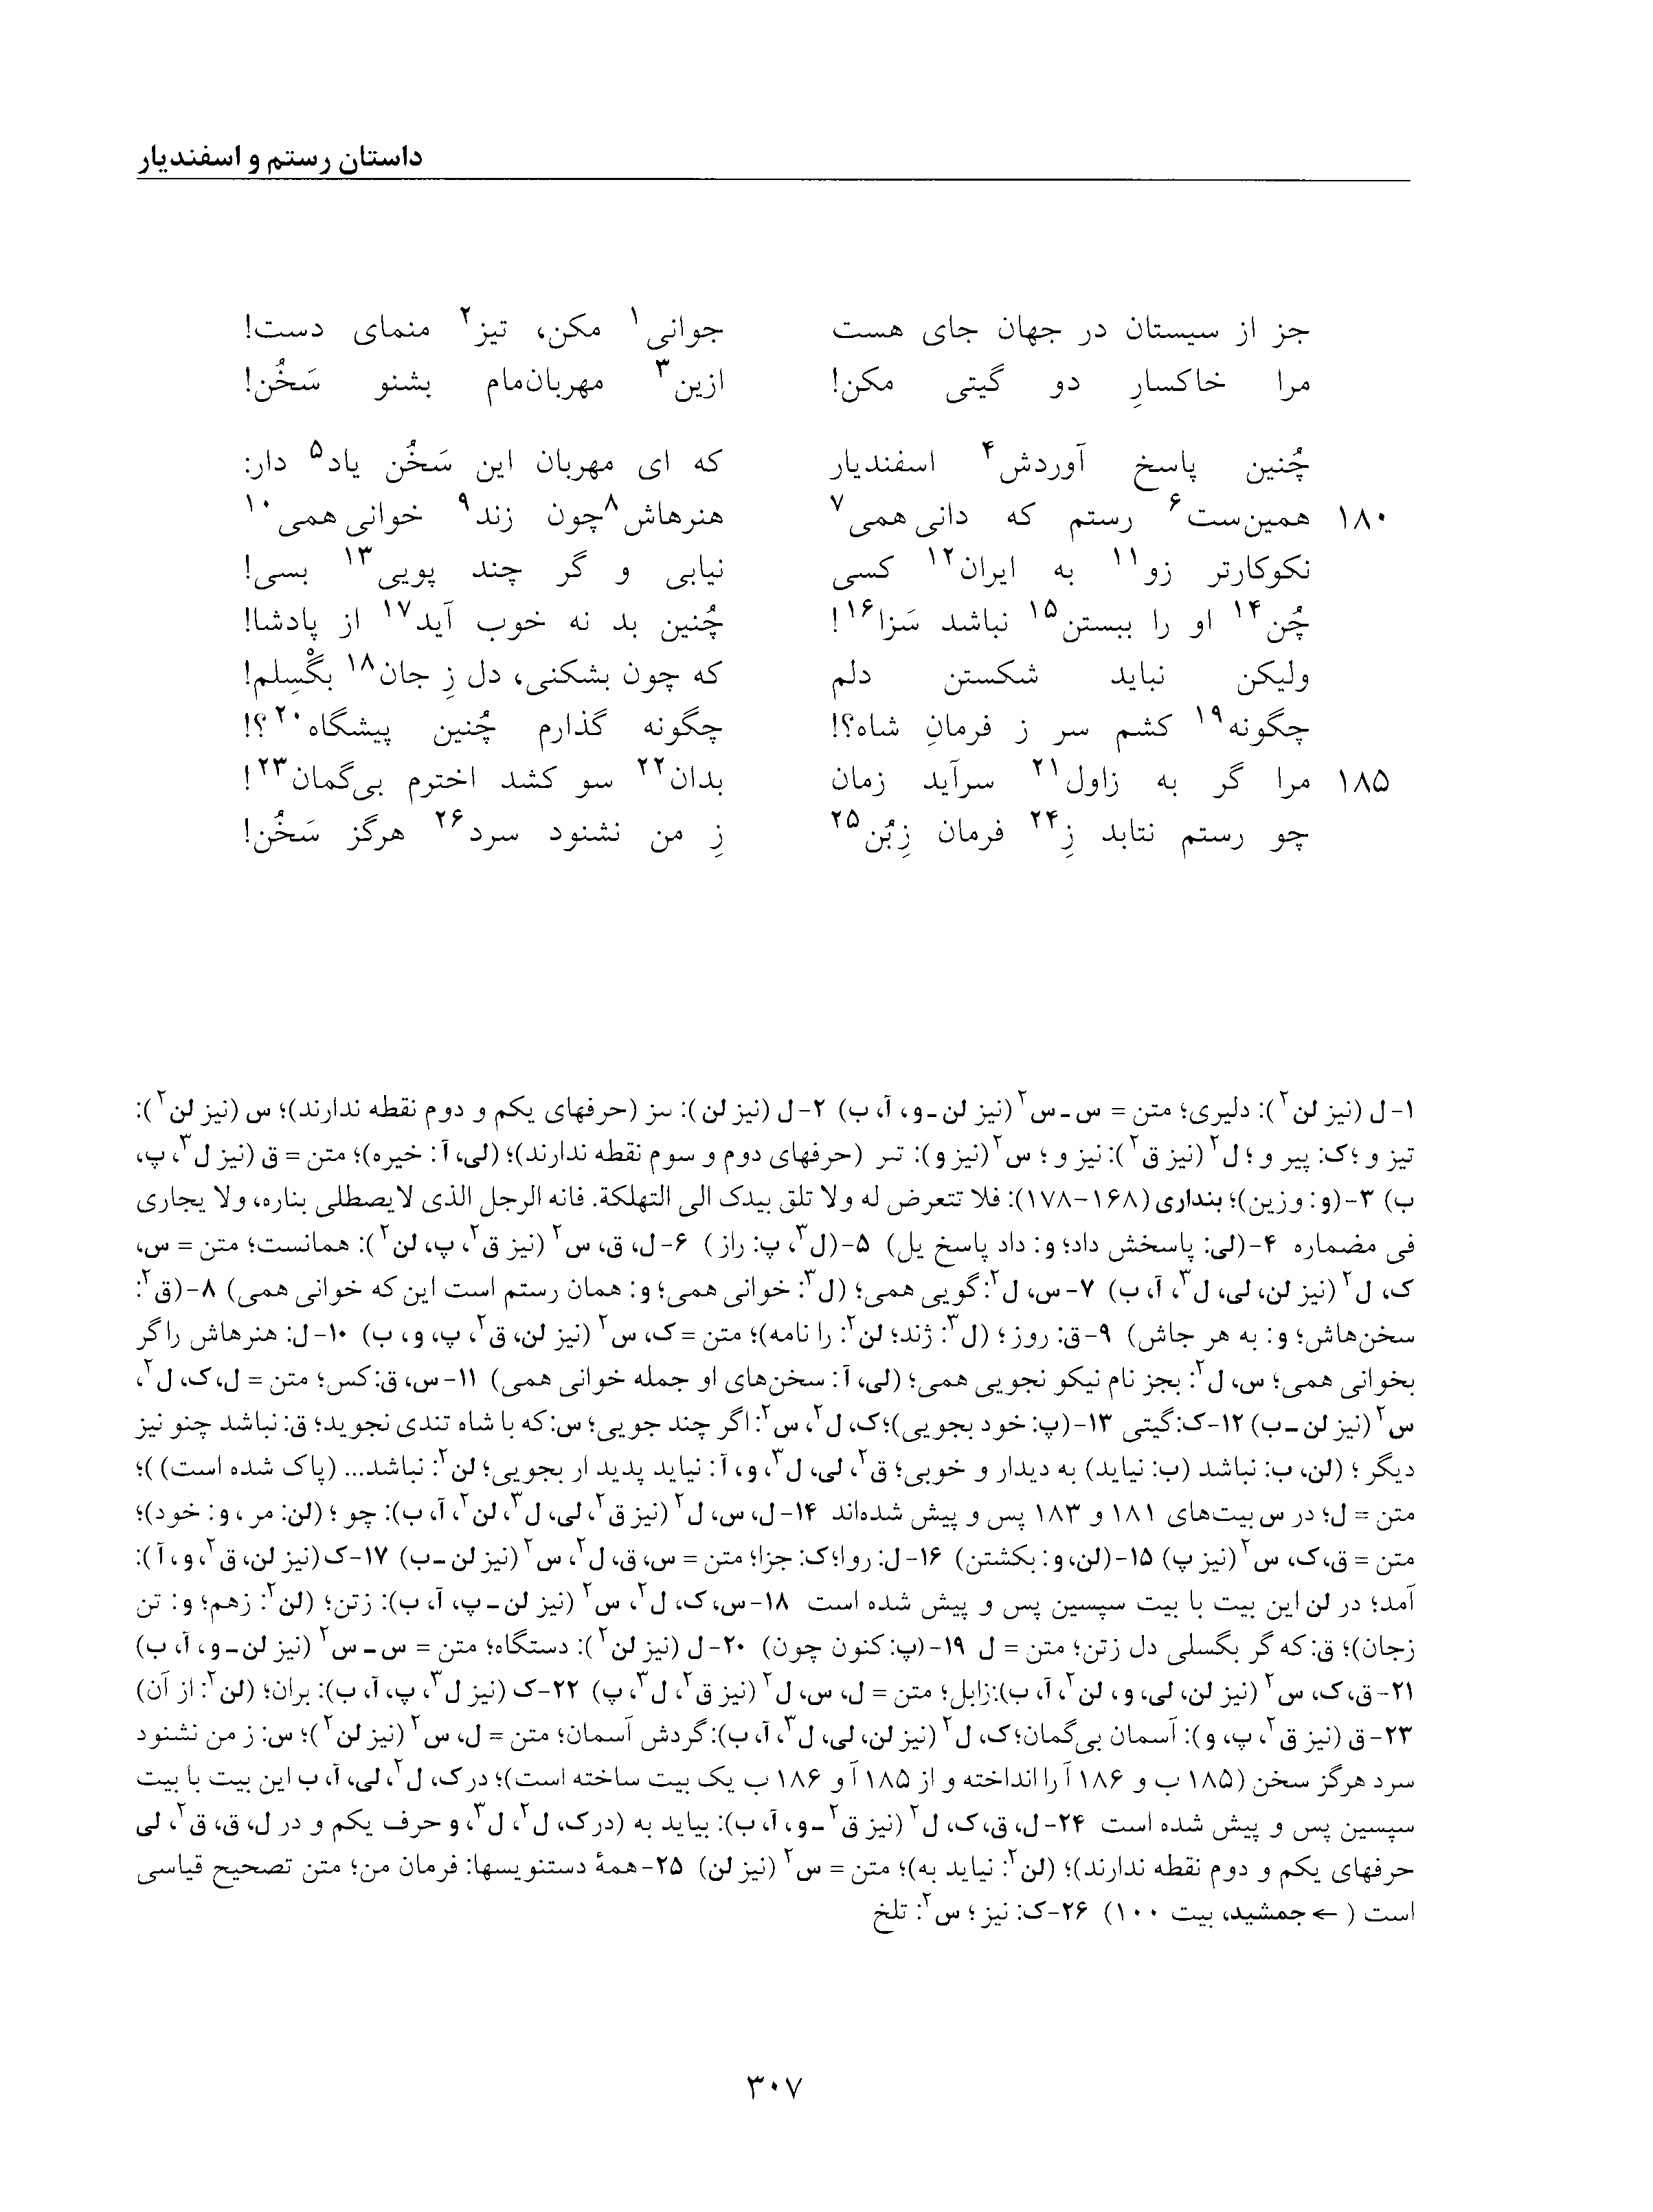 داستان رستم و اسفندیار
جز از سیستان در جهان جای هست جوانی۱ مکن، تیز۲ منمای دست!
مرا خاکسارِ دو گیتی مکن! ازین۳ مهربان‌مام بشنو سَخُن!
چُنین پاسخ آوردش۴ اسفندیار که ای مهربان این سَخُن یاد۵ دار:
۱۸۰ همین‌ست۶ رستم که دانی همی۷ هنرهاش۸ چون زند۹ خوانی همی۱۰
نکوکارتر زو۱۱ به ایران۱۲ کسی نیابی و گر چند پویی۱۳ بسی!
چُن۱۴ او را ببستن۱۵ نباشد سَزا۱۶! چُنین بد نه خوب آید۱۷ از پادشا!
ولیکن نباید شکستن دلم که چون بشکنی، دل زِ جان۱۸ بگْسِلم!
چگونه۱۹ کشم سر ز فرمانِ شاه؟! چگونه گذارم چُنین پیشگاه۲۰؟!
۱۸۵ مرا گر به زاول۲۱ سرآید زمان بدان۲۲ سو کشد اخترم بی‌گمان۲۳!
چو رستم نتابد زِ۲۴ فرمان زِبُن۲۵ زِ من نشنود سرد۲۶ هرگز سَخُن!
۱-ل (نیز لن۲): دلیری؛ متن = س-س۲ (نیز لن-و، آ، ب) ۲-ل (نیز لن): سز (حرفهای یکم و دوم نقطه ندارند)؛ س (نیز لن۲):
تیز و؛ ک: پیر و؛ ل۲ (نیز ق۲): نیز و؛ س۲ (نیز و): تر (حرفهای دوم و سوم نقطه ندارند)؛ (لی، آ: خیره)؛ متن = ق (نیز ل۳، پ،
ب) ۳-(و: وزین)؛ بنداری (۱۶۸-۱۷۸): فلا تتعرض له ولا تلق بیدک الی التهلکة. فانه الرجل الذی لایصطلی بناره، ولا یجاری
فی مضماره ۴-(لی: پاسخش داد؛ و: داد پاسخ یل) ۵-(ل۳، پ: راز) ۶-ل، ق، س۲ (نیز ق۲، پ، لن۲): همانست؛ متن = س،
ک، ل۲ (نیز لن، لی، ل۳، آ، ب) ۷-س، ل۲: گویی همی؛ (ل۳: خوانی همی؛ و: همان رستم است این که خوانی همی) ۸-(ق۲:
سخن‌هاش؛ و: به هر جاش) ۹-ق: روز؛ (ل۳: ژند؛ لن۲: را نامه)؛ متن = ک، س۲ (نیز لن، ق۲، پ، و، ب) ۱۰-ل: هنرهاش را گر
بخوانی همی؛ س، ل۲: بجز نام نیکو نجویی همی؛ (لی، آ: سخن‌های او جمله خوانی همی) ۱۱-س، ق: کس؛ متن = ل، ک، ل۲،
س۲ (نیز لن-ب) ۱۲-ک: گیتی ۱۳-(پ: خود بجویی)؛ ک، ل۲، س۲: اگر چند جویی؛ س: که با شاه تندی نجوید؛ ق: نباشد چنو نیز
دیگر؛ (لن، ب: نباشد (ب: نیاید) به دیدار و خوبی؛ ق۲، لی، ل۳، و، آ: نیاید پدید ار بجویی؛ لن۲: نباشد... (پاک شده است))؛
متن = ل؛ در س بیت‌های ۱۸۱ و ۱۸۳ پس و پیش شده‌اند ۱۴-ل، س، ل۲ (نیز ق۲، لی، ل۳، لن۲، آ، ب): چو؛ (لن: مر، و: خود)؛
متن = ق، ک، س۲ (نیز پ) ۱۵-(لن، و: بکشتن) ۱۶-ل: روا؛ ک: جزا؛ متن = س، ق، ل۲، س۲ (نیز لن-ب) ۱۷-ک (نیز لن، ق۲، و، آ):
آمد؛ در لن این بیت با بیت سپسین پس و پیش شده است ۱۸-س، ک، ل۲، س۲ (نیز لن-پ، آ، ب): زتن؛ (لن۲: زهم؛ و: تن
زجان)؛ ق: که گر بگسلی دل زتن؛ متن = ل ۱۹-(پ: کنون چون) ۲۰-ل (نیز لن۲): دستگاه؛ متن = س-س۲ (نیز لن-و، آ، ب)
۲۱-ق، ک، س۲ (نیز لن، لی، و، لن۲، آ، ب): زابل؛ متن = ل، س، ل۲ (نیز ق۲، ل۳، پ) ۲۲-ک (نیز ل۳، پ، آ، ب): بران؛ (لن۲: از آن)
۲۳-ق (نیز ق۲، پ، و): آسمان بی‌گمان؛ ک، ل۲ (نیز لن، لی، ل۳، آ، ب): گردش آسمان؛ متن = ل، س۲ (نیز لن۲)؛ س: ز من نشنود
سرد هرگز سخن (۱۸۵ ب و ۱۸۶ آ را انداخته و از ۱۸۵ آ و ۱۸۶ ب یک بیت ساخته است)؛ در ک، ل۲، لی، آ، ب این بیت با بیت
سپسین پس و پیش شده است ۲۴-ل، ق، ک، ل۲ (نیز ق۲-و، آ، ب): بیاید به (در ک، ل۲، ل۳، و حرف یکم و در ل، ق، ق۲، لی
حرفهای یکم و دوم نقطه ندارند)؛ (لن۲: نیاید به)؛ متن = س۲ (نیز لن) ۲۵-همهٔ دستنویسها: فرمان من؛ متن تصحیح قیاسی
است (← جمشید، بیت ۱۰۰) ۲۶-ک: نیز؛ س۲: تلخ
۳۰۷